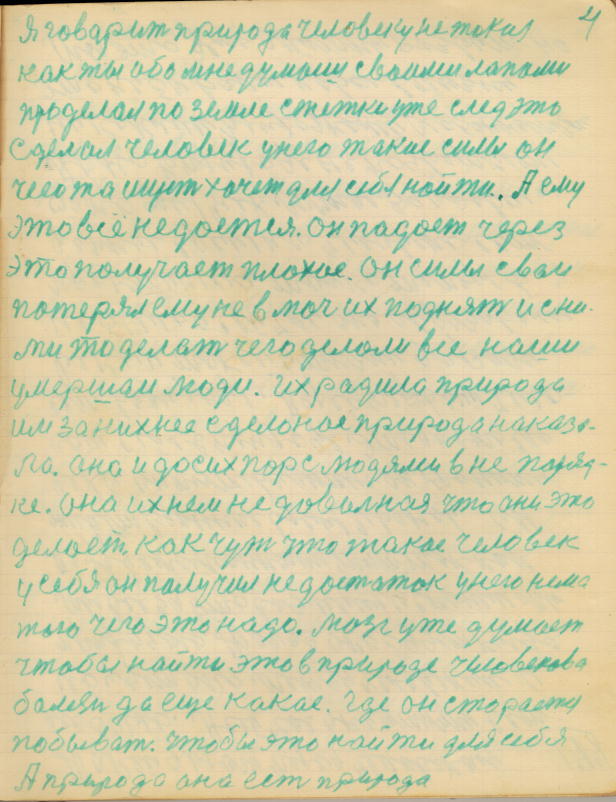 4
Я говарит природа человеку не такая
как ты обо мне думаиш своими лапами
проделал по земле стежки уже след это
сделал человек у него такие силы он
чего та ищит хочет для себя найти. А ему
это всё не дается. Он падает через
это получает плохое. Он силы сваи
потерял ему не в моч их поднят и сни-
ми то делат чего делали все наши
умершаи люди. Их радила природа
им за нихнее сделоное природа наказа-
ла. она и до сих пор с людями в не поряд-
ке. она ихнем не довалная что они это
делает, как чут что такое человек
у себя он получил недостаток у него нема
того чего это надо. мозг уже думает
чтобы найти это в природе человекова
балези да еще какае. Где он старается
побыват. чтобы это найти для себя
А природа она ест природа